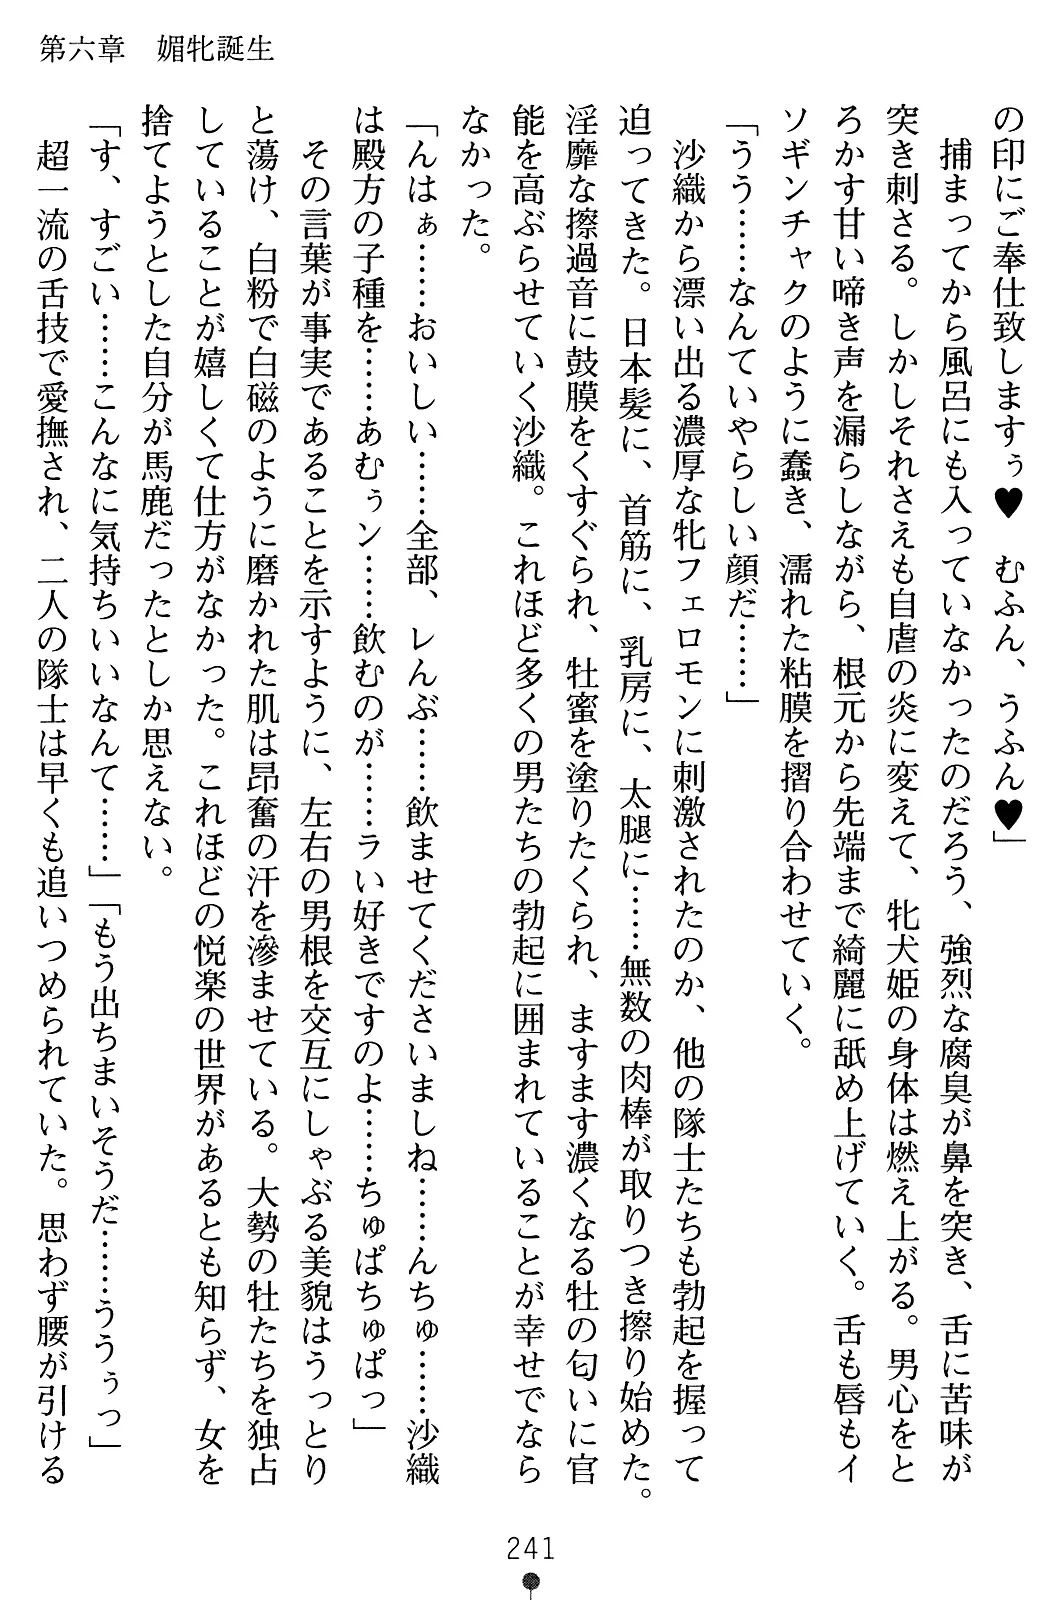 第六章　媚牝誕生
の印にご奉仕致しますぅ♥　むふん、うふん♥」
　捕まってから風呂にも入っていなかったのだろう、強烈な腐臭が鼻を突き、舌に苦味が
突き刺さる。しかしそれさえも自虐の炎に変えて、牝犬姫の身体は燃え上がる。男心をと
ろかす甘い啼き声を漏らしながら、根元から先端まで綺麗に舐め上げていく。舌も唇もイ
ソギンチャクのように蠢き、濡れた粘膜を摺り合わせていく。
「うう……なんていやらしい顔だ……」
　沙織から漂い出る濃厚な牝フェロモンに刺激されたのか、他の隊士たちも勃起を握って
迫ってきた。日本髪に、首筋に、乳房に、太腿に……無数の肉棒が取りつき擦り始めた。
淫靡な擦過音に鼓膜をくすぐられ、牡蜜を塗りたくられ、ますます濃くなる牡の匂いに官
能を高ぶらせていく沙織。これほど多くの男たちの勃起に囲まれていることが幸せでなら
なかった。
「んはぁ……おいしい……全部、レんぶ……飲ませてくださいましね……んちゅ……沙織
は殿方の子種を……あむぅン……飲むのが……ラい好きですのよ……ちゅぱちゅぱっ」
　その言葉が事実であることを示すように、左右の男根を交互にしゃぶる美貌はうっとり
と蕩け、白粉で白磁のように磨かれた肌は昂奮の汗を滲ませている。大勢の牡たちを独占
していることが嬉しくて仕方がなかった。これほどの悦楽の世界があるとも知らず、女を
捨てようとした自分が馬鹿だったとしか思えない。
「す、すごい……こんなに気持ちいいなんて……」「もう出ちまいそうだ……ううぅっ」
　超一流の舌技で愛撫され、二人の隊士は早くも追いつめられていた。思わず腰が引ける
241